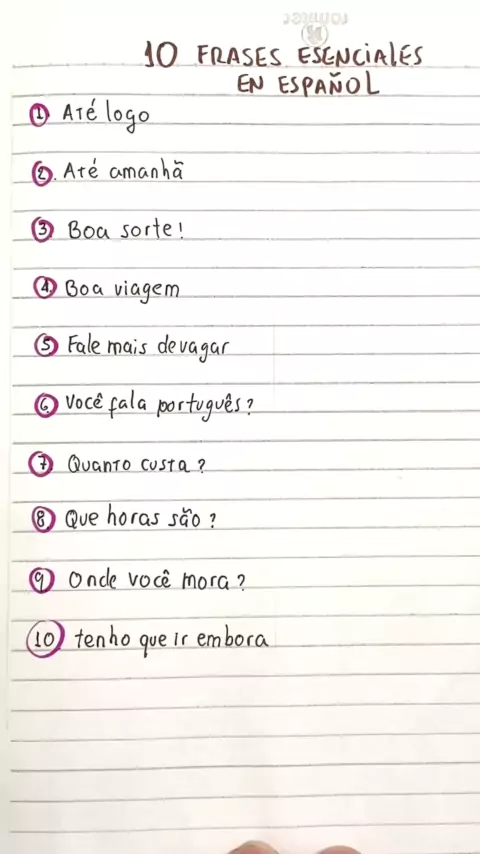 10 FRASES ESENCIALES
EN ESPAÑOL
1 Até logo
2. Até amanhã
3 Boa sorte!
4. Boa viagem
5 Fale mais devagar
6 Você fala português?
7 Quanto custa?
8 Que horas são?
9 Onde você mora?
10 tenho que ir embora